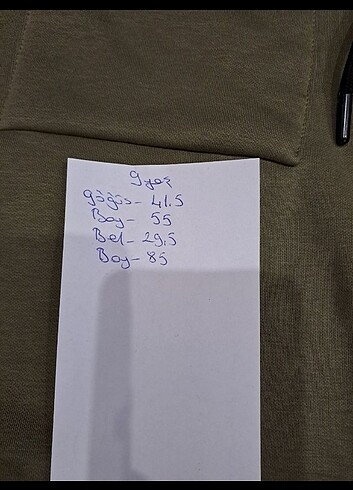 9 yaş
göğüs- 41.5
Boy- 55
Bel- 29,5
Boy- 85